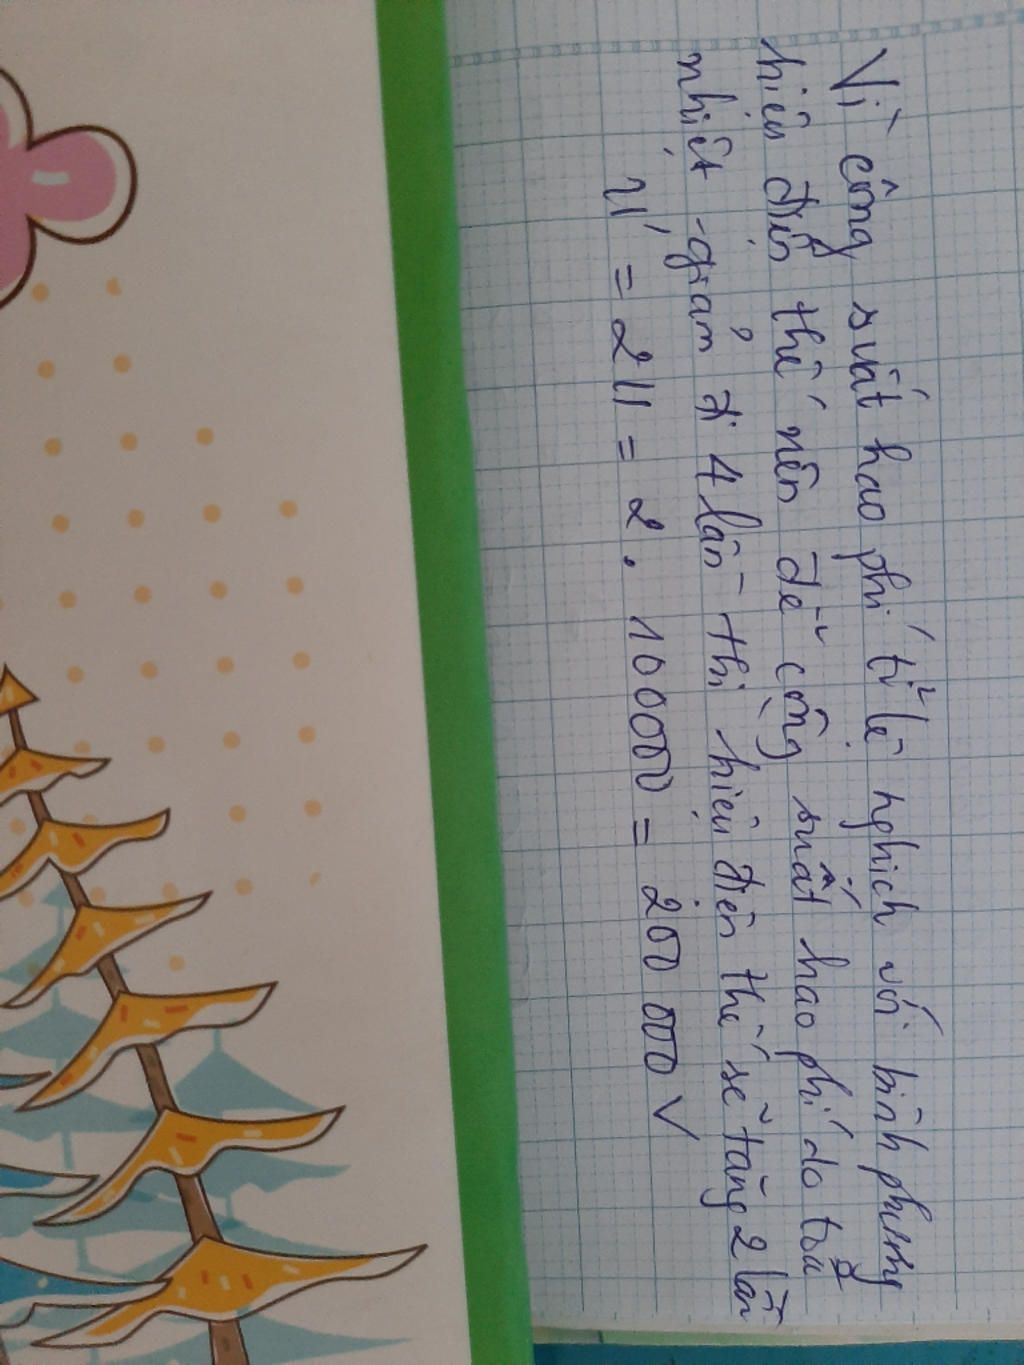 Vì công suất hao phí tỉ lệ nghịch với bình phương
hiệu điện thế nên để công suất hao phí do toả
nhiệt giảm đi 4 lần thì hiệu điện thế sẽ tăng 2 lần
U' = 2U = 2. 100000 = 200 000 V